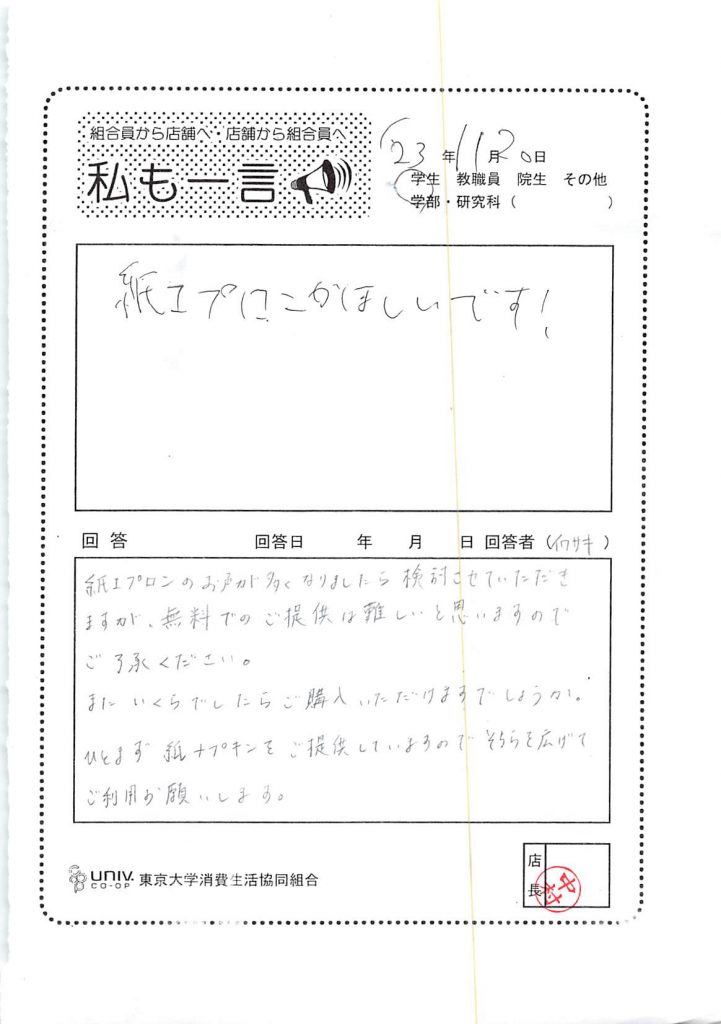 組合員から店舗へ・店舗から組合員へ
私も一言
'23年11月20日
学生 教職員 院生 その他
学部・研究科（ ）
紙エプロンがほしいです！
回答 回答日 年 月 日 回答者（イワサキ）
紙エプロンのお声が多くなりましたら検討させていただき
ますが、無料でのご提供は難しいと思いますので
ご了承ください。
また いくらでしたらご購入いただけますでしょうか。
ひとまず 紙ナプキンをご提供していますので そちらを広げて
ご利用お願いします。
UNIV. CO-OP 東京大学消費生活協同組合
店長
中村